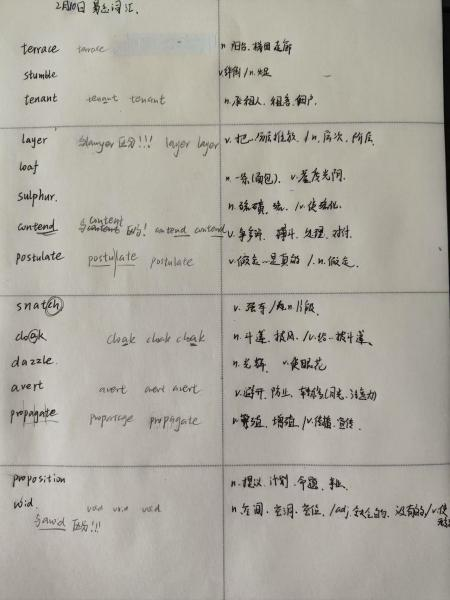 2月10日 单词词汇.
terrace terrace n. 阳台、梯田 走廊
stumble v.绊倒 / n.
tenant tenant tenant n. 承租人、租客、佃户.
layer 与lawyer 区分!!! layer layer v.把…分层 /n. 层次、阶层.
loaf n.一条(面包). v.虚度光阴.
sulphur. n.硫磺、硫. /v.使硫化.
content
contend 与content 区分! contend contend v.争夺 搏斗、处理、对付.
postulate postulate postulate v.假定…是真的 /.n.假定.
snatch v. 强夺 /n. 片段.
cloak cloak cloak cloak n.斗篷、披风. /v.给…披斗篷.
dazzle. n.光辉. v.使眼花
avert avert avert avert v.避开、防止、转移(目光、注意力)
propagate propagage propagate v.繁殖、增殖 /v.传播、宣传.
proposition n.提议、计划、命题、事业.
void void void void n.空间、空洞、空位. /adj.缺乏的、没有的 /v.使
与avoid 区分!!!